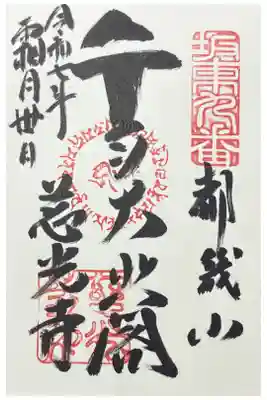 坂東九番
都幾山
千手大悲閣
慈光寺
令和七年
霜月卅日